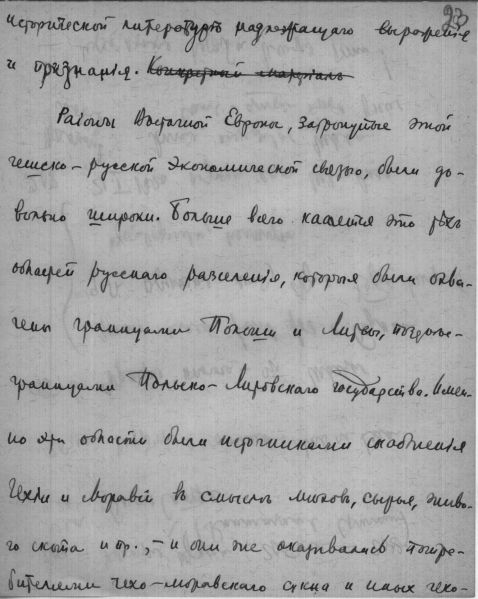 23
исторической литературѣ надлежащаго выраженія
и признанія. Конкретный матеріалъ
Районы Восточной Европы, затронутые этой
чешско-русской экономической связью, были до-
вольно широки. Больше всего касается это тѣхъ
областей русскаго разселенія, которыя были охва-
чены границами Польши и Литвы, позднѣе-
границами Польско-Литовскаго государства. Имен-
но эти области были источниками снабженія
Чехіи и Моравіи въ смыслѣ мѣховъ, сырья, живо-
го скота и др., – и они же оказывались потре-
бителями чехо-моравскаго сукна и иныхъ чехо-